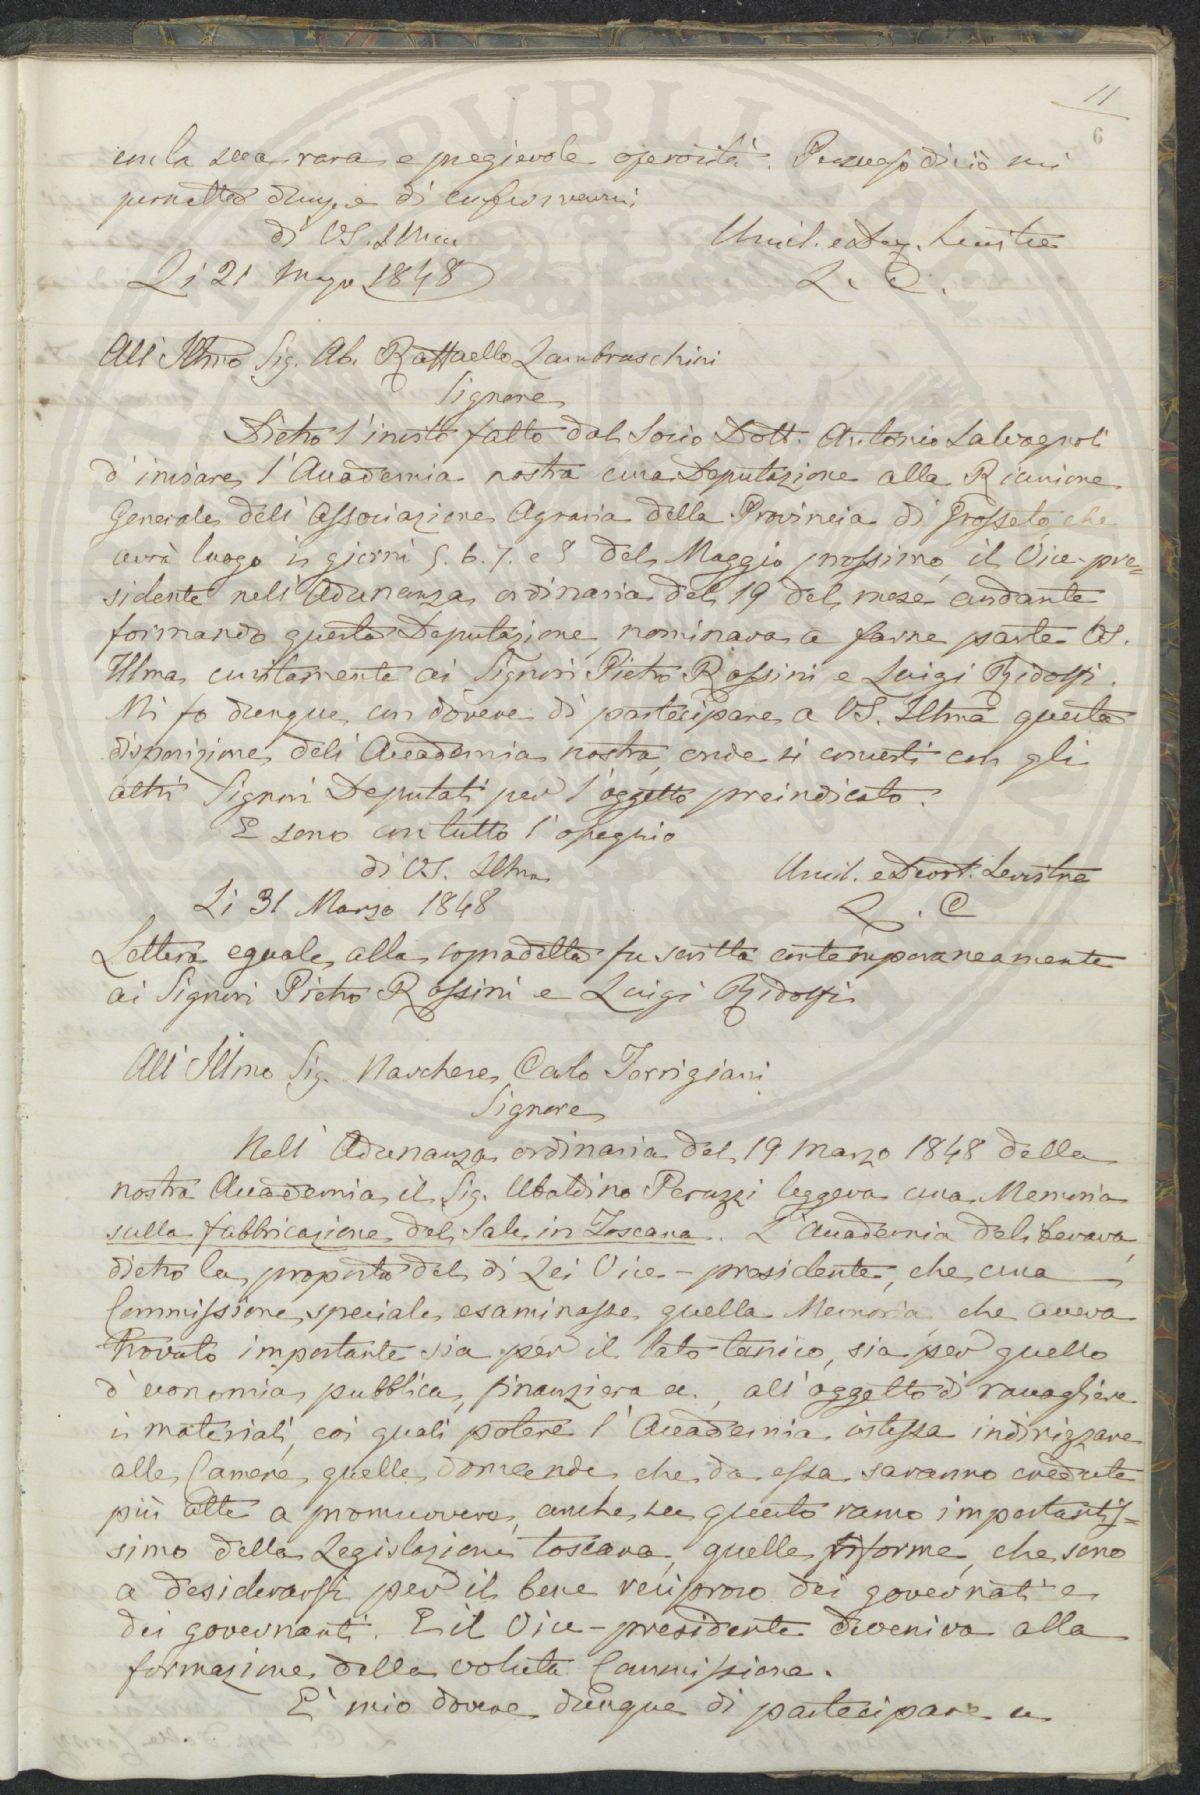 11
6
colla sua rara e pregievole operosità. Pieno di ciò mi
permetta dunque di confermarmi
di VS. Illma Umil. e Dev. Servitre
Li 21 Marzo 1848 L. C.
All' Illmo Sig. Ab. Raffaello Lambruschini
Signore
Dietro l'invito fatto dal Socio Dott. Antonio Salvagnoli
d'inviare l'Accademia nostra una Deputazione alla Riunione
Generale dell'Associazione Agraria della Provincia di Grosseto, che
avrà luogo i giorni 5. 6. 7. e 8 del Maggio prossimo, il Vice-pre=
sidente nell'Adunanza ordinaria del 19 del mese andante
formando questa Deputazione, nominava a farne parte VS.
Illma unitamente ai Signori Pietro Rossini e Luigi Ridolfi.
Mi fo dunque un dovere di partecipare a VS. Illma questa
disposizione dell'Accademia nostra, onde si concerti con gli
altri Signori Deputati per l'oggetto preindicato.
E sono con tutto l'ossequio
di VS. Illma Umil. e Devot. Servitre
Li 31 Marzo 1848 L. C
Lettera eguale alla sopradetta fu scritta contemporaneamente
ai Signori Pietro Rossini e Luigi Ridolfi
All' Illmo Sig. Marchese Carlo Torrigiani
Signore
Nell'Adunanza ordinaria del 19 Marzo 1848 della
nostra Accademia il Sig. Ubaldino Peruzzi leggeva una Memoria
sulla fabbricazione del Sale in Toscana. L'Accademia deliberava,
dietro la proposta del di Lei Vice-presidente, che una
Commissione speciale esaminasse quella Memoria, che aveva
trovato importante sia per il lato tecnico, sia per quello
d'economia pubblica, finanziera ec., all'oggetto di raccogliere
i materiali, coi quali potere l'Accademia istessa indirizzare
alle Camere quelle domande, che da essa saranno credute
più atte a promuovere, anche su questo ramo importantis=
simo della Legislazione toscana, quelle riforme, che sono
a desiderarsi per il bene reciproco dei governati e
dei governanti. E il Vice-presidente deveniva alla
formazione della voluta Commissione.
E' mio dovere dunque di partecipare a